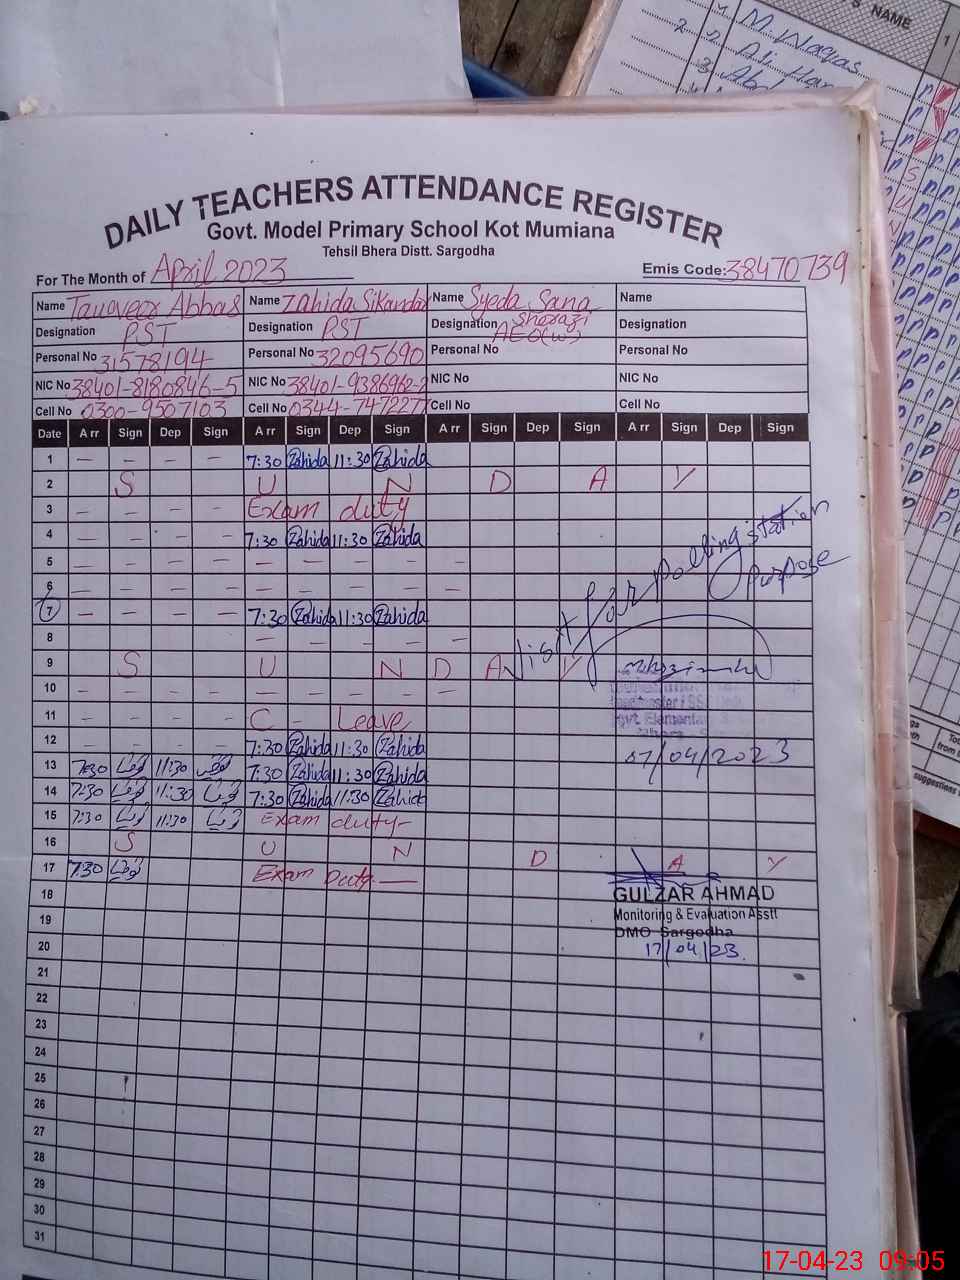 S NAME
1
M. Waqas
2 2 Ali
3
DAILY TEACHERS ATTENDANCE REGISTER
Govt. Model Primary School Kot Mumiana
Tehsil Bhera Distt. Sargodha
For The Month of April 2023 Emis Code: 38470739
Name Tauqeer Abbas Name Zahida Sikandar Name Syeda Sana Name
Sherazi
Designation PST Designation PST Designation AEO(W) Designation
Personal No 31578194 Personal No 32095690 Personal No Personal No
NIC No 38401-8180846-5 NIC No 38401-9386962-2 NIC No NIC No
Cell No 0300-9507103 Cell No 0344-7472277 Cell No Cell No
Date A rr Sign Dep Sign A rr Sign Dep Sign A rr Sign Dep Sign A rr Sign Dep Sign
1 – – – – 7:30 Zahida 11:30 Zahida
2 S U N D A Y
3 – – – – Exam duty
4 – – – – 7:30 Zahida 11:30 Zahida
5 – – – – – – – –
6 – – – – – – – –
7 – – – – 7:30 Zahida 11:30 Zahida
Visit for polling station
purpose
8 – – – –
9 S U N D A Y
10 – – – – – – – –
11 – – – – C – Leave
12 – – – – 7:30 Zahida 11:30 Zahida
07/04/2023
13 7:30 11:30 7:30 Zahida 11:30 Zahida
14 7:30 11:30 7:30 Zahida 11:30 Zahida
15 7:30 11:30 Exam duty–
16 S U N D A Y
17 7:30 Exam Duty —
18
GULZAR AHMAD
19
Monitoring & Evaluation Asstt
DMO Sargodha
20
17/04/23.
21
22
23
24
25
26
27
28
29
30
31
suggestions
17-04-23 09:05